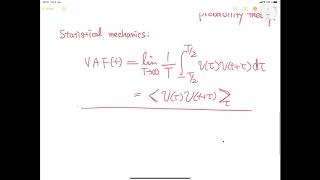 probability the
Statistical mechanics:
VAF(t) = lim T→∞ 1/T ∫_{-T/2}^{T/2} v(τ)v(t+τ)dτ
= <v(τ)v(t+τ)>_τ